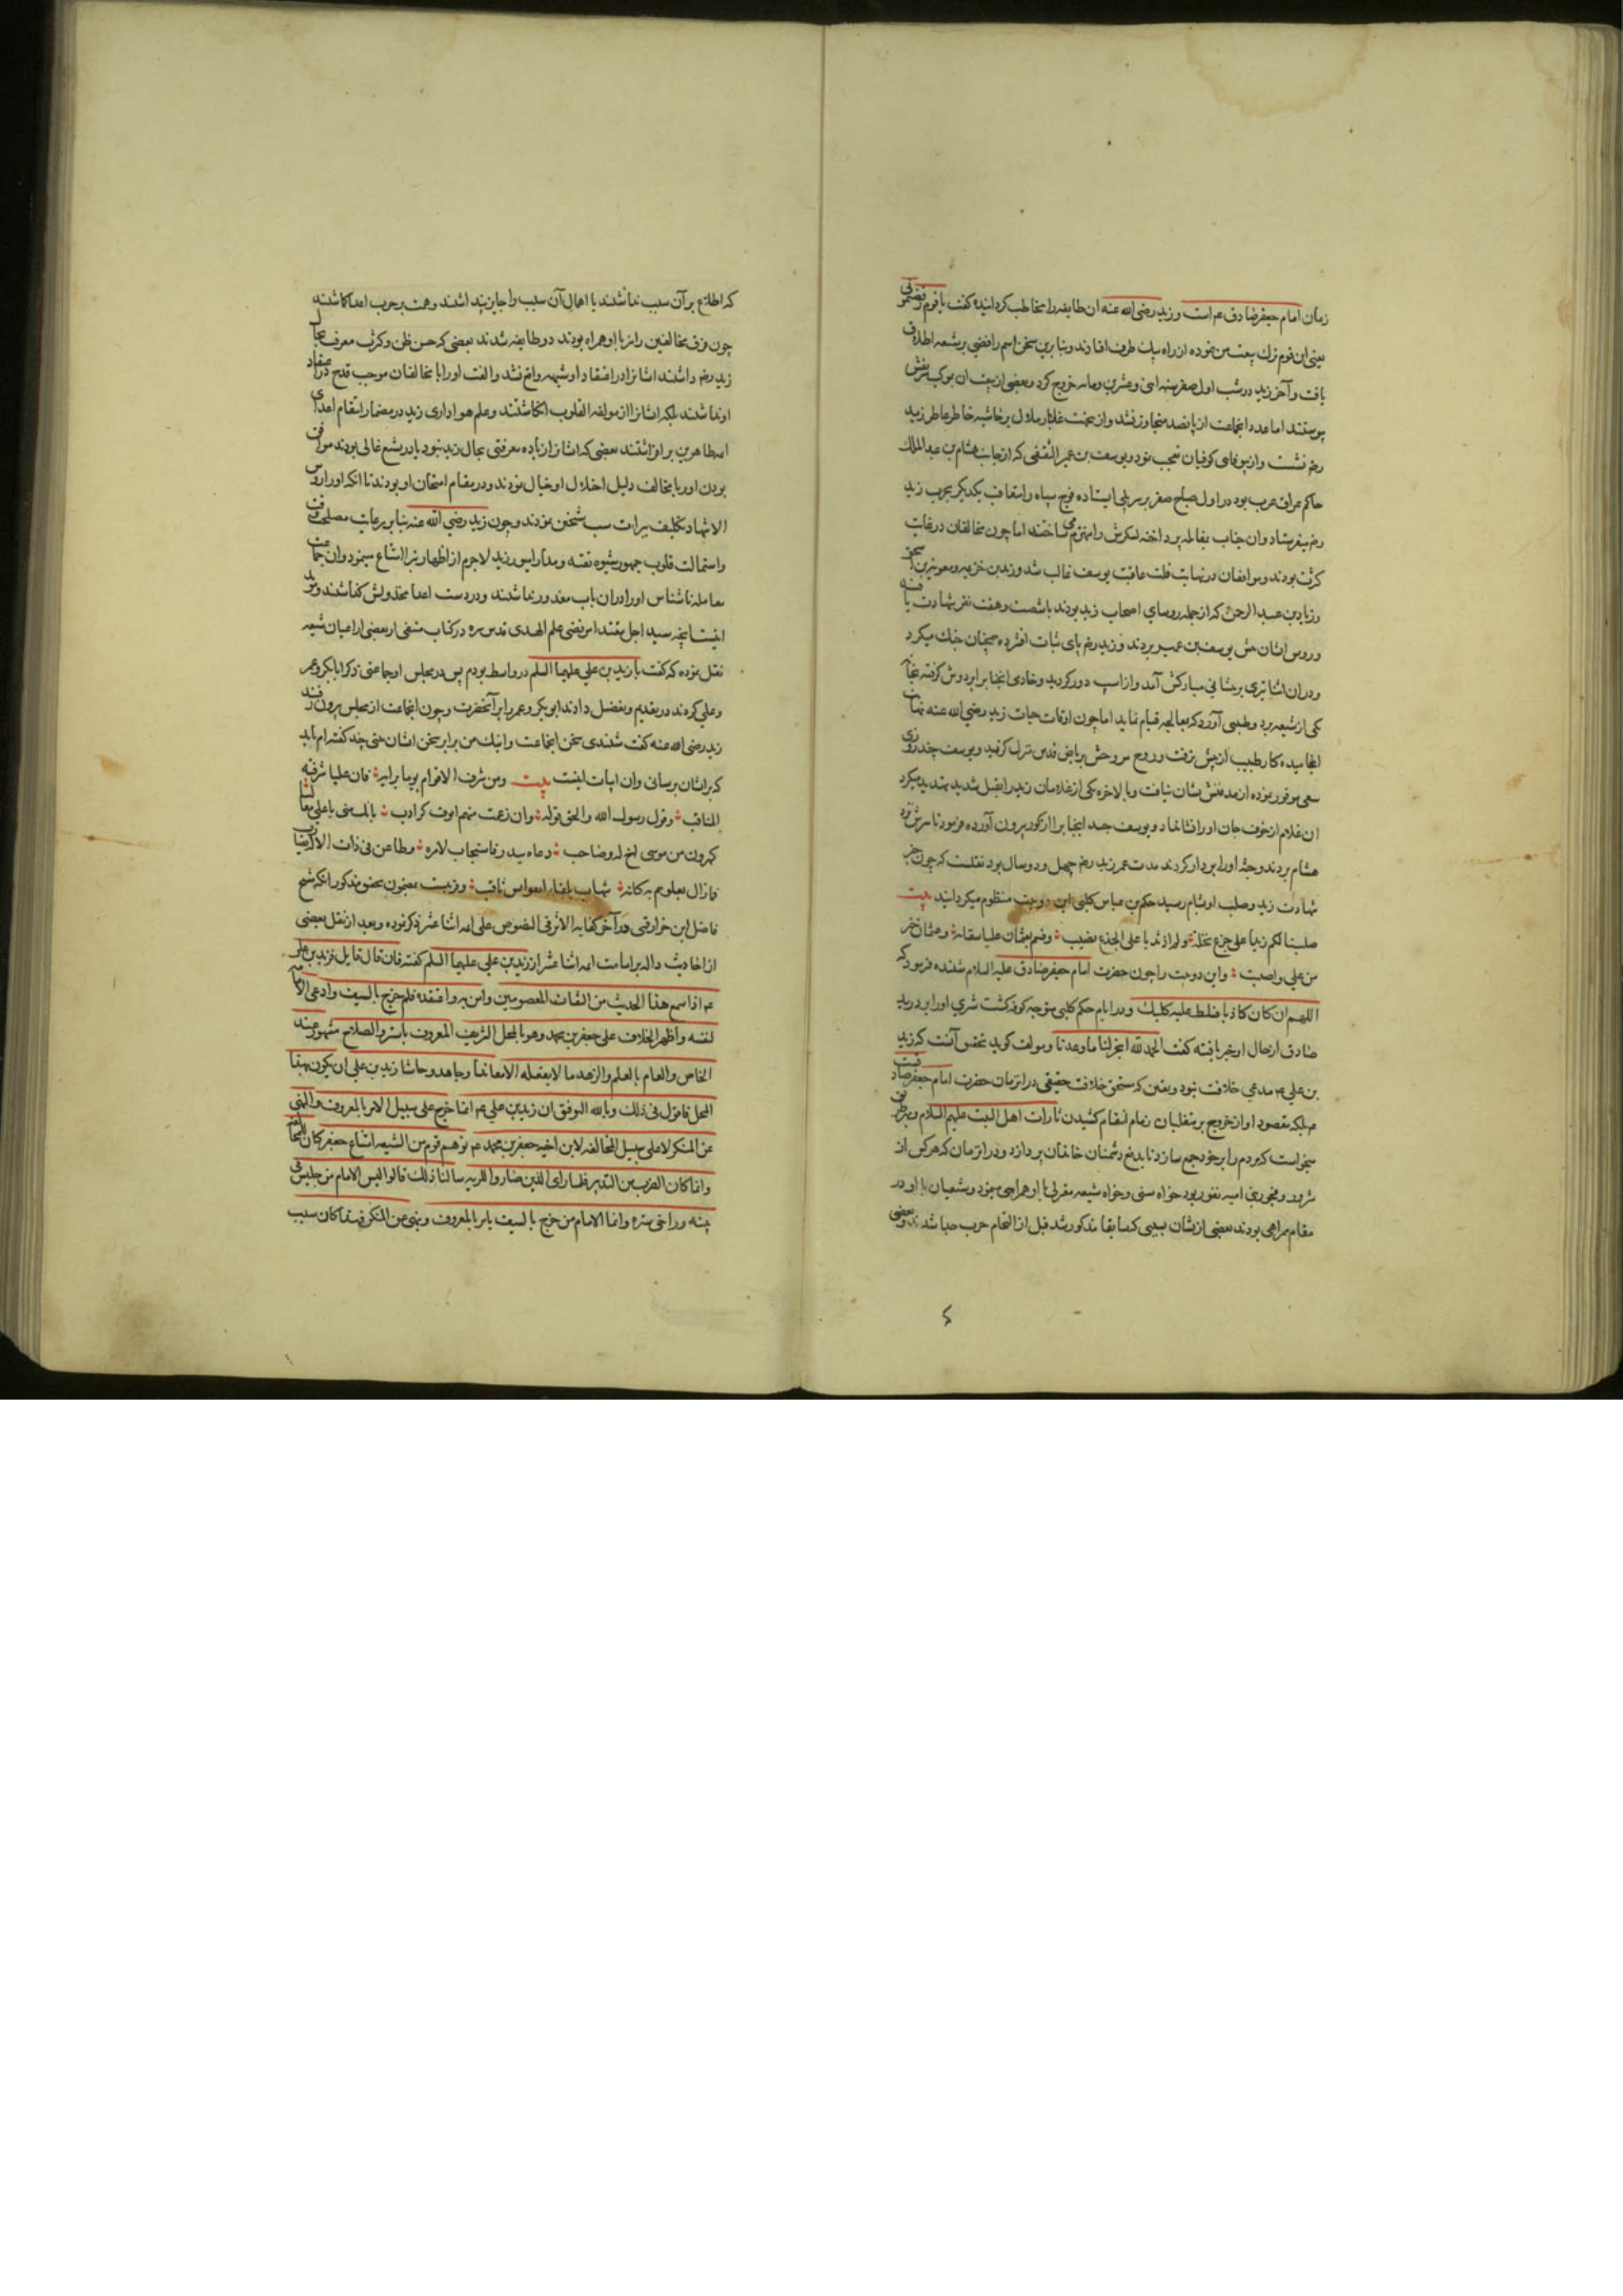 زمان امام جعفر صادق عم است و زید رضی الله عنه ان طایفه را مخاطب کردانیده کفت یا قوم رفضتمونی
یعنی این قوم ترک بیعت من نموده از راه یک طرف افتادند و بنا برین سخن اسم رافضی بر شیعه اطلاق
یافت و آخر زید در شب اول صفر سنه اثنی و عشرین و مایه خروج کرد و بعضی از بیعتیان بموکب
پیوستند اما عدد انجماعت از پانصد متجاوز نشد و ازینجهت غبار ملال بر حاشیه خاطر عاطر زید
رضه نشست و از بیوفای کوفیان متعجب نمود و یوسف بن عمر الثقفی که از جانب هشام بن عبد الملک
حاکم عراق عرب بود در اول صباح صفر بر سر پلی ایستاده فوج سپاه را متعاقب یکدیکر بحرب زید
رضه میفرستاد وان جناب بمقاتله پرداخته لشکرش را منهزم می ساختند اما چون مخالفان در غایت
کثرت بودند و موافقان در نهایت قلت عاقبت یوسف غالب شد و زید بن خزیمه و معویه بن اسحق
و زیاد بن عبد الرحمن که از جمله روسای اصحاب زید بودند با شصت و هفت نفر شهادت یافته
و روس ایشان پیش یوسف بن عمیر بردند و زید رضه پای ثبات افشرده همچنان جنک میکرد
و دران اثنا تیری بر پیشانی مبارکش آمد و از اسپ دور کردید و خادمی انجناب را بر دوش کرفته بخانه
یکی از شیعه برد و طبیبی آورد که بمعالجه قیام نماید اما چون اوقات حیات زید رضی الله عنه بنهایت
انجامیده کار طبیب از پیش نرفت و روح پر فتوحش بریاض قدس منزل کرفت و یوسف چند روزی
سعی موفور نموده از مدفنش نشان نیافت و بالاخره یکی از غلامان زید را بقتل شدید تهدید میکرد
ان غلام از خوف جان او را نشان داد و یوسف جسد انجناب را از کور بیرون آورده فرمود تا سرش نزد
هشام بردند و جثه او را بر دار کردند مدت عمر زید رضه چهل و دو سال بود نقلست که چون خبر
شهادت زید و صلب او بشام رسید حکم بن عباس کلبی این دو بیت منظوم میکردانید بیت
صلبنا لکم زیدا علی جذع نخلة ولم ار مهدیا علی الجذع یصلب وقستم بعثمان علیا سفاهة وعثمان خیر
من علی واطیب واین دو بیت را چون حضرت امام جعفر صادق علیه السلام شنیده فرمود که
اللهم ان کان کاذبا فسلط علیه کلبک و در ایام حکم کلبی متوجه کوفه کشت شیری او را بر درید
صادق از حال او خبر یافته کفت الحمد لله انجز لنا ما وعدنا و مولف کوید تحقیق آنست که زید
بن علی عم مدعی خلافت نبود و یقین که مستحق خلافت حقیقی دران زمان حضرت امام جعفر صادقست
عم بلکه مقصود او از خروج بر متغلبان زمان انتقام کشیدن ثارات اهل البیت علیهم السلام
میخواست که مردم را بر خود جمع سازد تا بدفع دشمنان خاندان پردازد و دران زمان که هر کس از
شرور و فجور بنی امیه نفور بود خواه سنی و خواه شیعه معتزلی با او همراهی مینمود و شیعیان با او در
مقام همراهی بودند بعضی ازیشان بسببی که سابقا مذکور شد قبل از التحام حرب جدا شدند و بعضی
که اطلاع بر آن سبب نداشتند یا اهمال آن سبب را جایز نپنداشتند و همت بر حرب اعدا کاشتند
چون فرق مخالفین را نیز با او همراه بودند دو طایفه شدند بعضی که حسن ظن و کثرت معرفت بحال
زید رضه داشتند ایشانرا در اعتقاد او شبهه واقع نشد و الفت او را با مخالفان موجب قدح در اعتقاد
او نداشتند بلکه ایشانرا از مولفه القلوب انکاشتند و علم هواداری زید در مضمار انتقام اعدای
اهل طاهرین بر افراشتند بعضی که ایشانرا زیاده معرفتی بحال زید نبود یا در تشیع غالی بودند موافق
بودن او را با مخالف دلیل اخلال او خیال نمودند و در مقام امتحان او بودند تا انکه او را روس
الاشهاد تکلیف ببرات سب شیخین نمودند و چون زید رضی الله عنه بنا بر رعایت مصلحت وقت
واستمالت قلوب جمهور بشیوه تقیه و مدارا میورزید لاجرم از اظهار تبرا امتناع مینمود وان جماعت
معامله ناشناس او را دران باب معذور نداشتند و در دست اعدا مخذولش کذاشتند و مؤید
اینست انچه سید اجل مقتدا مرتضی علم الهدی قدس سره در کتاب شفی از بعضی از اعیان شیعه
نقل نموده که کفت با زید بن علی علیهما السلم در واسط بودم پس در مجلس او جماعتی ذکر ابابکر و عمر
و علی کردند در تقدیم و تفضیل دادند ابوبکر و عمر را بر آنحضرت و چون انجماعت از مجلس بیرون رفتند
زید رضی الله عنه کفت شنیدی سخن انجماعت و اینک من برابر سخن ایشان بیتی چند کفته ام باید
که بایشان برسانی وان ابیات اینست بیت ومن شرف الاقوام یوما برایه فان علیا شرفته
المناقب وقول رسول الله والحق قوله وان رغمت منهم انوف کواذب بانک منی یا علی معالنا
کهرون من موسی اخ لی وصاحب دعاه ببدر فاستجاب لامره وطاعن فی ذات الاله
فاضل ابن خزار قمی در آخر کفایه الاثر فی النصوص علی ائمه اثنا عشر ذکر نموده و بعد از نقل بعضی
از احادیث داله بر امامت ائمه اثنا عشر از زید بن علی علیهما السلم کفته فان قال قایل فزید بن علی
عم اذا سمع هذا الحدیث من الثقات المعصومین وامن به واعتقده فلم خرج بالسیف وادعی الامامه
لنفسه واظهر الخلاف علی جعفر بن محمد وهو بالمحل الشریف المعروف بالستر والصلاح مشهور عند
الخاص والعام بالعلم والزهد ما لا یفعله الا معاند او جاحد وحاشا زید بن علی ان یکون بهذا
المحل فاقول فی ذلک وبالله التوفیق ان زید بن علی عم انما خرج علی سبیل الامر بالمعروف والنهی
عن المنکر لا علی سبیل المخالفه لابن اخیه جعفر بن محمد عم
پیته وارخی ستره وانما الامام من خرج بالسیف یامر بالمعروف وینهی عن المنکر فهذا کان سبب